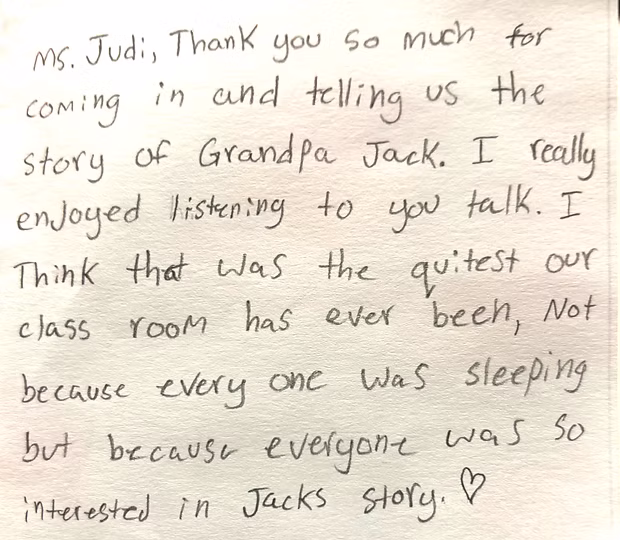 Ms. Judi, Thank you so much for
coming in and telling us the
story of Grandpa Jack. I really
enjoyed listening to you talk. I
Think that was the quitest our
class room has ever been, Not
because every one was sleeping
but because everyone was so
interested in Jacks story. ♡